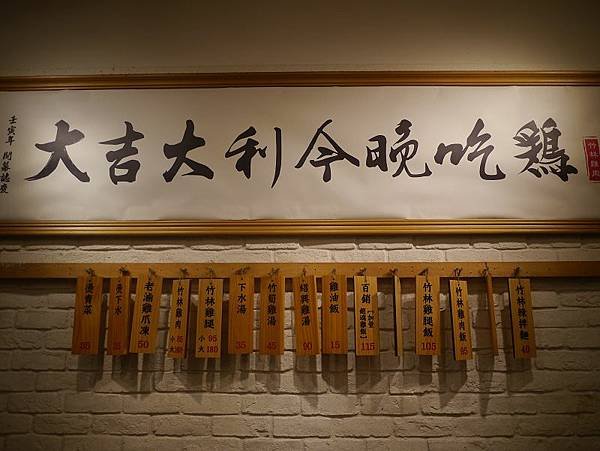 大吉大利今晚吃鶏
壬寅年 開幕誌慶
竹林雞肉
燙青菜
燙下水
老滷雞爪凍 50
竹林雞肉 小 大
竹林雞腿 小 95 大 180
下水湯 35
竹筍雞湯 45
紹興雞湯 90
雞油飯 15
百銷 115
竹林雞腿飯 105
竹林雞肉飯 95
竹林辣拌麵 40